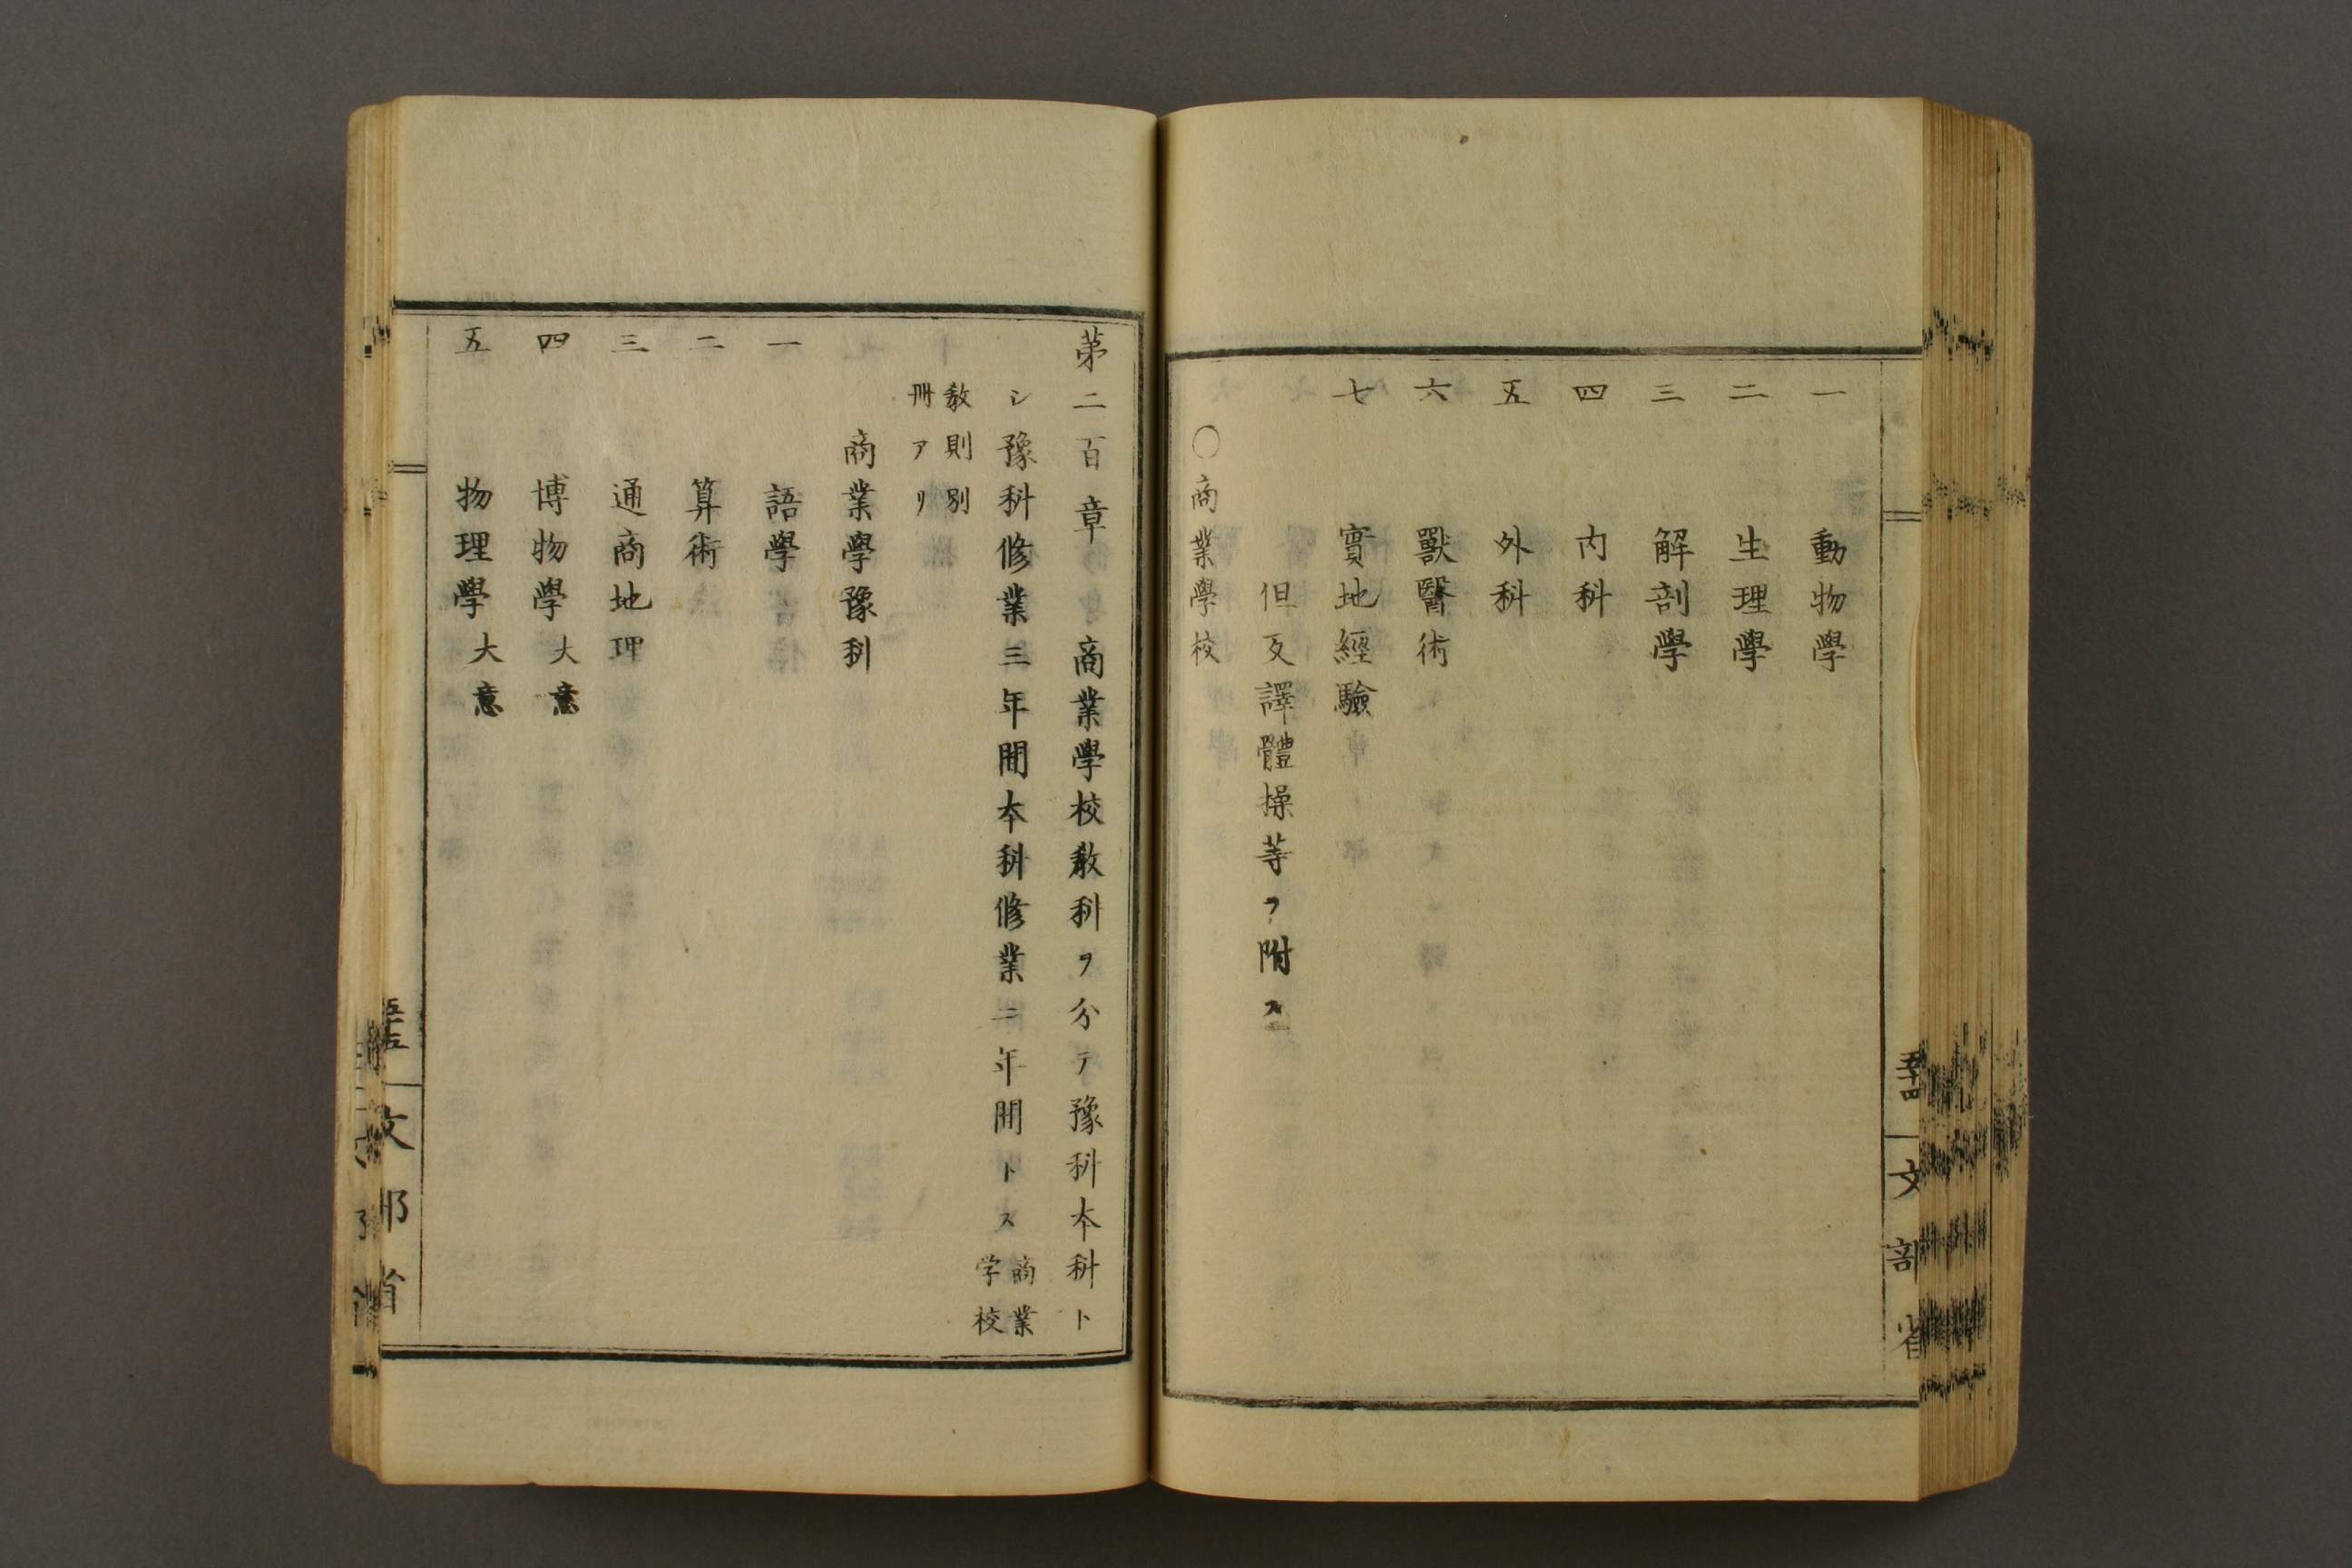 一 動物學
二 生理學
三 解剖學
四 内科
五 外科
六 獸醫術
七 實地經驗
但反譯體操等ヲ附ス
○商業學校
第二百章 商業學校敎科ヲ分テ豫科本科ト
シ豫科修業三年間本科修業二年間トス商業学校
敎則別冊アリ
商業學豫科
一 語學
二 算術
三 通商地理
四 博物學大意
五 物理學大意
文部省
文部省